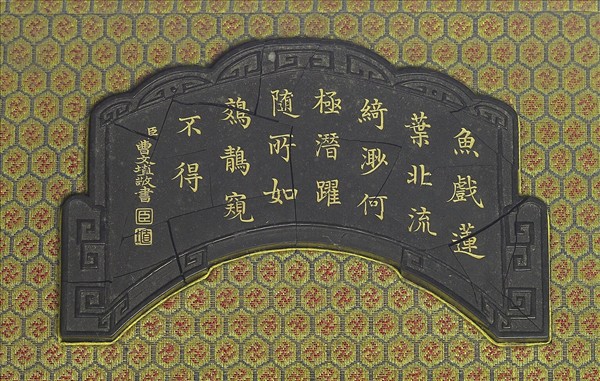 魚戲蓮
葉北流
綺渺何
極潛躍
隨所如
鵁鶄窺
不得
臣曹文埴敬書
臣
埴